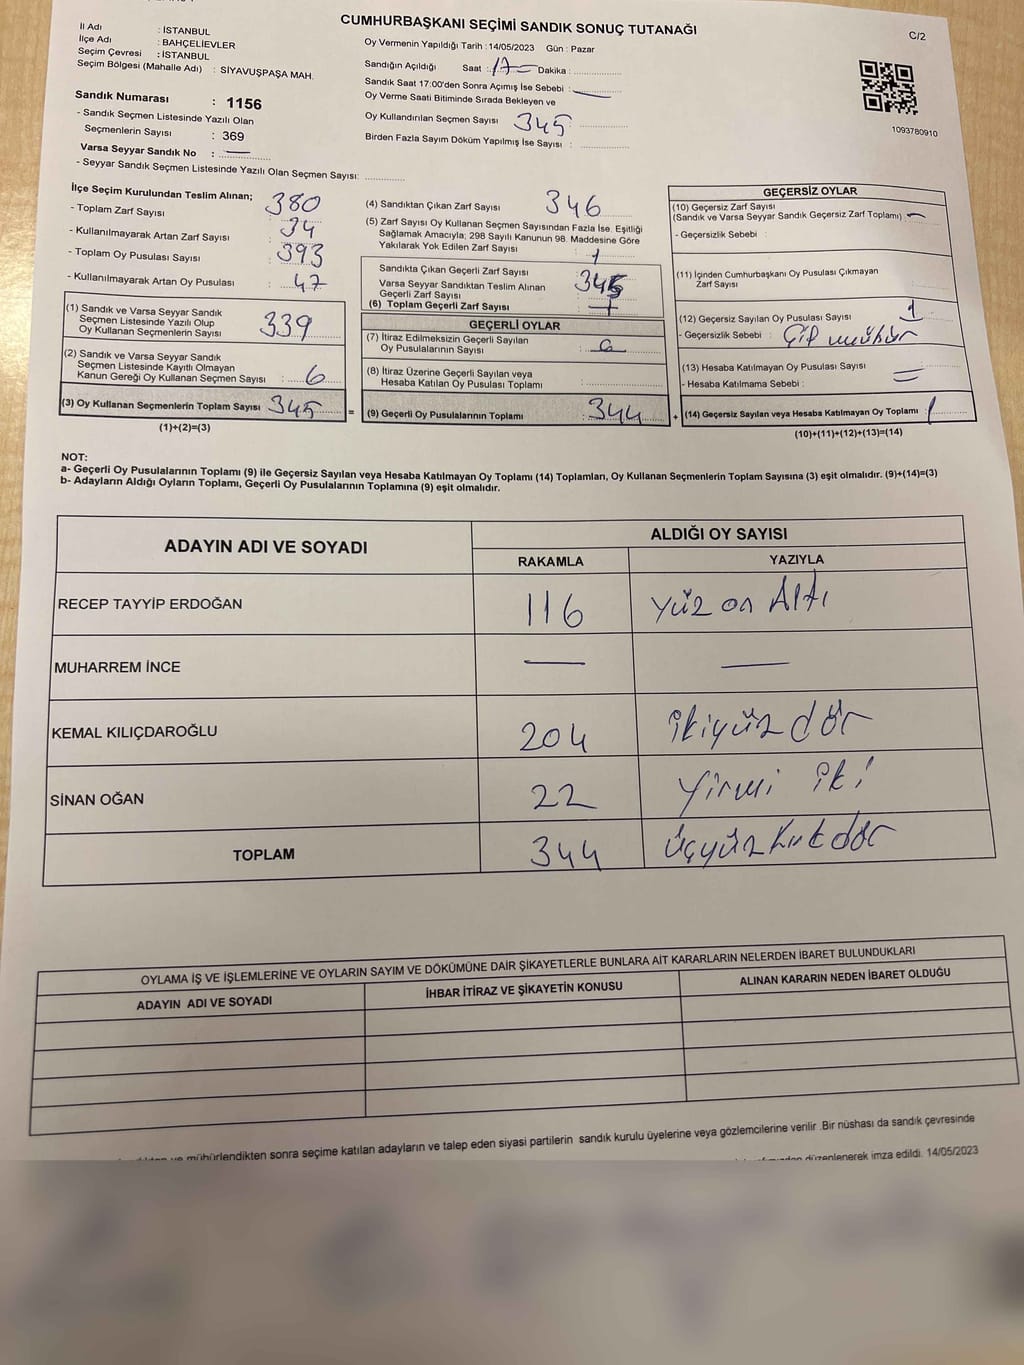 CUMHURBAŞKANI SEÇİMİ SANDIK SONUÇ TUTANAĞI
C/2
İl Adı : İSTANBUL
İlçe Adı : BAHÇELİEVLER
Seçim Çevresi : İSTANBUL
Seçim Bölgesi (Mahalle Adı) : SİYAVUŞPAŞA MAH.
Sandık Numarası : 1156
- Sandık Seçmen Listesinde Yazılı Olan
Seçmenlerin Sayısı : 369
Varsa Seyyar Sandık No : —
- Seyyar Sandık Seçmen Listesinde Yazılı Olan Seçmen Sayısı:
Oy Vermenin Yapıldığı Tarih : 14/05/2023 Gün : Pazar
Sandığın Açıldığı Saat : 17 Dakika :
Sandık Saat 17:00'den Sonra Açımış İse Sebebi : —
Oy Verme Saati Bitiminde Sırada Bekleyen ve
Oy Kullandırılan Seçmen Sayısı 345
Birden Fazla Sayım Döküm Yapılmış İse Sayısı :
1093780910
İlçe Seçim Kurulundan Teslim Alınan;
- Toplam Zarf Sayısı : 380
- Kullanılmayarak Artan Zarf Sayısı : 34
- Toplam Oy Pusulası Sayısı : 393
- Kullanılmayarak Artan Oy Pusulası : 47
(1) Sandık ve Varsa Seyyar Sandık
Seçmen Listesinde Yazılı Olup
Oy Kullanan Seçmenlerin Sayısı 339
(2) Sandık ve Varsa Seyyar Sandık
Seçmen Listesinde Kayıtlı Olmayan
Kanun Gereği Oy Kullanan Seçmen Sayısı : 6
(3) Oy Kullanan Seçmenlerin Toplam Sayısı 345 =
(1)+(2)=(3)
(4) Sandıktan Çıkan Zarf Sayısı 346
(5) Zarf Sayısı Oy Kullanan Seçmen Sayısından Fazla İse, Eşitliği
Sağlamak Amacıyla; 298 Sayılı Kanunun 98. Maddesine Göre
Yakılarak Yok Edilen Zarf Sayısı : 1
Sandıkta Çıkan Geçerli Zarf Sayısı : 345
Varsa Seyyar Sandıktan Teslim Alınan
Geçerli Zarf Sayısı
(6) Toplam Geçerli Zarf Sayısı
GEÇERLİ OYLAR
(7) İtiraz Edilmeksizin Geçerli Sayılan
Oy Pusulalarının Sayısı :
(8) İtiraz Üzerine Geçerli Sayılan veya
Hesaba Katılan Oy Pusulası Toplamı :
(9) Geçerli Oy Pusulalarının Toplamı : 344 +
GEÇERSİZ OYLAR
(10) Geçersiz Zarf Sayısı
(Sandık ve Varsa Seyyar Sandık Geçersiz Zarf Toplamı) : —
- Geçersizlik Sebebi :
(11) İçinden Cumhurbaşkanı Oy Pusulası Çıkmayan
Zarf Sayısı :
(12) Geçersiz Sayılan Oy Pusulası Sayısı : 1
- Geçersizlik Sebebi : Çif mühür
(13) Hesaba Katılmayan Oy Pusulası Sayısı :
- Hesaba Katılmama Sebebi :
(14) Geçersiz Sayılan veya Hesaba Katılmayan Oy Toplamı : 1
(10)+(11)+(12)+(13)=(14)
NOT:
a- Geçerli Oy Pusulalarının Toplamı (9) ile Geçersiz Sayılan veya Hesaba Katılmayan Oy Toplamı (14) Toplamları, Oy Kullanan Seçmenlerin Toplam Sayısına (3) eşit olmalıdır. (9)+(14)=(3)
b- Adayların Aldığı Oyların Toplamı, Geçerli Oy Pusulalarının Toplamına (9) eşit olmalıdır.
ADAYIN ADI VE SOYADI
ALDIĞI OY SAYISI
RAKAMLA YAZIYLA
RECEP TAYYİP ERDOĞAN 116 yüz on Altı
MUHARREM İNCE — —
KEMAL KILIÇDAROĞLU 204 ikiyüz dör
SİNAN OĞAN 22 Yirmi iki
TOPLAM 344 üçyüz kırk dör
OYLAMA İŞ VE İŞLEMLERİNE VE OYLARIN SAYIM VE DÖKÜMÜNE DAİR ŞİKAYETLERLE BUNLARA AİT KARARLARIN NELERDEN İBARET BULUNDUKLARI
ADAYIN ADI VE SOYADI İHBAR İTİRAZ VE ŞİKAYETİN KONUSU ALINAN KARARIN NEDEN İBARET OLDUĞU
mühürlendikten sonra seçime katılan adayların ve talep eden siyasi partilerin sandık kurulu üyelerine veya gözlemcilerine verilir .Bir nüshası da sandık çevresinde
düzenlenerek imza edildi. 14/05/2023